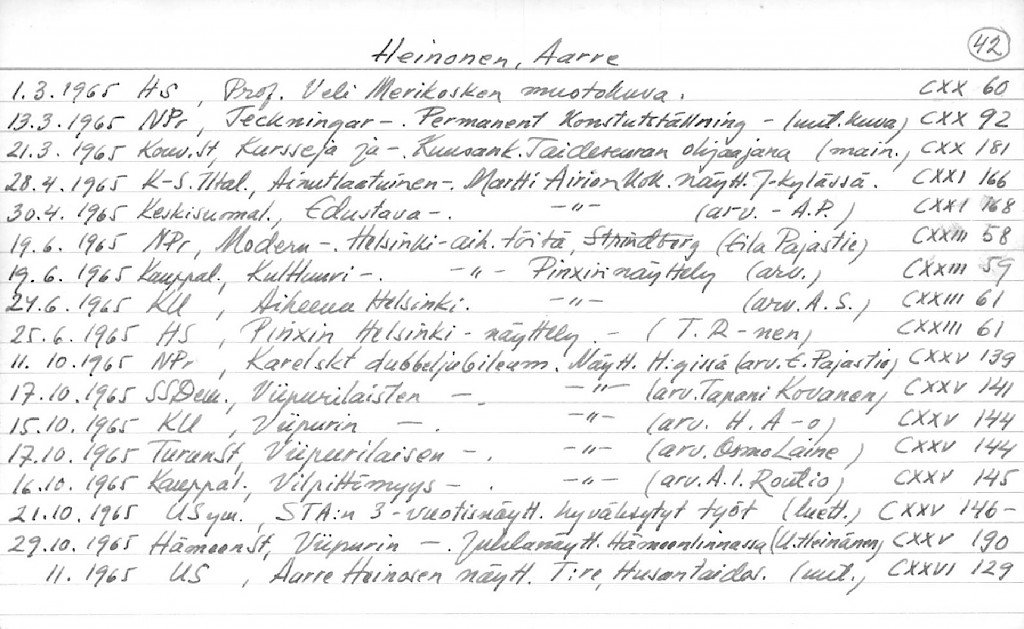 42
Heinonen, Aarre
1.3.1965 HS, Prof. Veli Merikosken muotokuva. CXX 60
13.3.1965 NPr, Teckningar -. Permanent Konstutställning - (uut. kuva) CXX 92
21.3.1965 Kouv.St, Kursseja ja -. Kuusank. Taideseuran ohjaajana (main., CXX 181
28.4.1965 K-S. Iltal., Ainutlaatuinen -. Martti Airion kok. näytt. J-kylässä. CXXI 166
30.4.1965 Keskisuomal., Edustava -. -"- (arv. - A.P.) CXXI 168
19.6.1965 NPr, Modern -. Helsinki-aih. töitä, Strindberg (Eila Pajastie) CXXIII 58
19.6.1965 Kauppal., Kulttuuri -. -"- Pinxin näyttely (arv.) CXXIII 59
24.6.1965 KU, Aiheena Helsinki. -"- (arv. A.S.) CXXIII 61
25.6.1965 HS, Pinxin Helsinki-näyttely - (T.R-nen) CXXIII 61
11.10.1965 NPr, Karelskt dubbeljubileum. Näytt. H:gissä (arv. E. Pajastie) CXXV 139
17.10.1965 SSDem., Viipurilaisten -. -"- (arv. Tapani Kovanen) CXXV 141
15.10.1965 KU, Viipurin -. -"- (arv. H. A-o) CXXV 144
17.10.1965 TurunSt, Viipurilaisen -. -"- (arv. Osmo Laine) CXXV 144
16.10.1965 Kauppal., Vilpittömyys -. -"- (arv. A.I. Routio) CXXV 145
21.10.1965 USym., STA:n 3-vuotisnäytt. hyväksytyt työt (luett.) CXXV 146-
29.10.1965 HämeenSt, Viipurin -. Juhlanäytt. Hämeenlinnassa (U. Heinänen) CXXV 190
11.1965 US, Aarre Heinosen näytt. T:re, Husantaidos. (uut., CXXVI 129